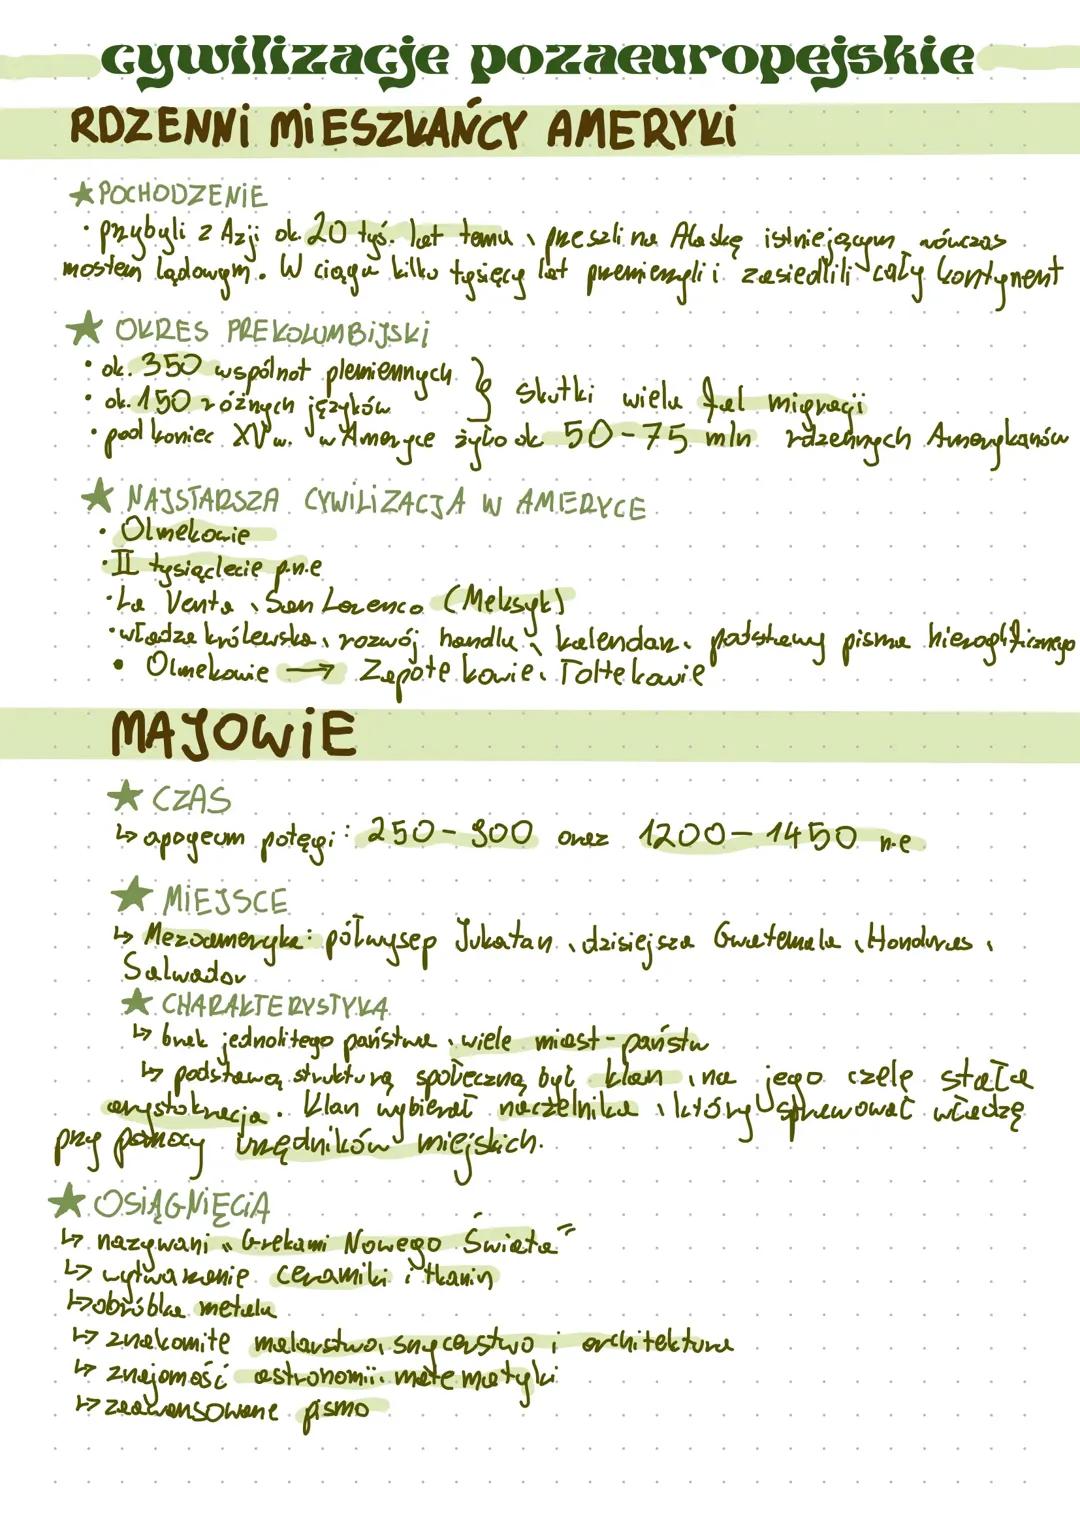 cywilizacje pozaeuropejskie
RDZENNI MIESZKAŃCY AMERYKI
★ POCHODZENIE
• przybyli z Azji ok. 20 tyś. lat temu, przeszli na Alaskę istniejącym wówczas
mostem lądowym. W ciągu kilku tysięcy lat przemierzyli i zasiedlili cały kontynent
★ OKRES PREKOLUMBIJSKI
• ok. 350 wspólnot plemiennych
• ok. 150 różnych języków
} skutki wielu fal migracji
• pod koniec XV w. w Ameryce żyło ok 50-75 mln rdzennych Amerykanów
★ NAJSTARSZA CYWILIZACJA W AMERYCE
• Olmekowie
• II tysiąclecie p.n.e
• La Venta, San Lorenco (Meksyk)
• władza królewska, rozwój handlu, kalendarz, podstawy pisma hieroglificznego
• Olmekowie → Zapotekowie, Toltekowie
MAJOWIE
★ CZAS
↳ apogeum potęgi: 250-900 oraz 1200-1450 n.e
★ MIEJSCE
↳ Mezoameryka: półwysep Jukatan, dzisiejsza Gwatemala, Honduras,
Salwador
★ CHARAKTERYSTYKA
↳ brak jednolitego państwa, wiele miast-państw
↳ podstawą strukturą społeczną był klan, na jego czele stała
arystokracja. Klan wybierał naczelnika, który sprawował władzę
przy pomocy urzędników miejskich.
★ OSIĄGNIĘCIA
↳ nazywani "Grekami Nowego Świata"
↳ wytwarzanie ceramiki i tkanin
↳ obróbka metalu
↳ znakomite malarstwo, snycerstwo i architektura
↳ znajomość astronomii, matematyki
↳ zaawansowane pismo